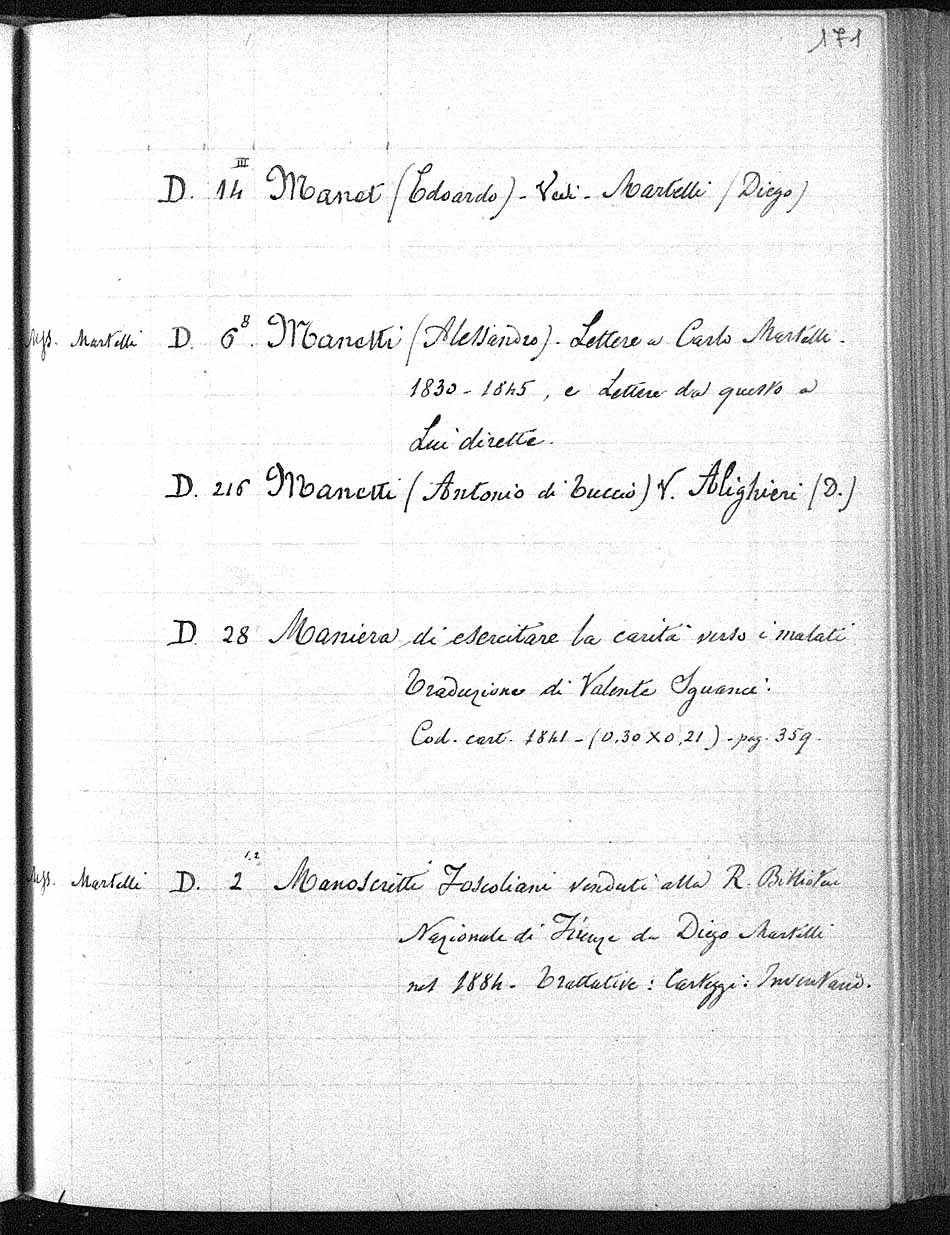 171
D. 14 III Manet (Edoardo) - Vedi - Martelli (Diego)
Mss. Martelli D. 6 8. Manetti (Alessandro) - Lettere a Carlo Martelli -
1830 - 1845, e Lettere da questo a
Lui dirette.
D. 216 Manetti (Antonio di Tuccio) V. Alighieri (D.)
D 28 Maniera di esercitare la carità verso i malati
Traduzione di Valente Sguanci:
Cod. cart. 1841 - (0,30 X 0,21) - pag. 359.
Mss. Martelli D. 2 1,2 Manoscritti Foscoliani venduti alla R. Biblioteca
Nazionale di Firenze da Diego Martelli
nel 1884 - Trattative: Carteggi: Inventario.